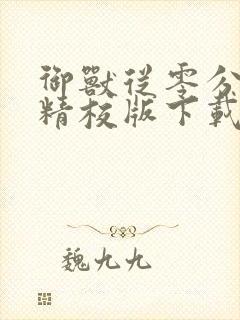 御獸從零分
精校版下載
魏九九